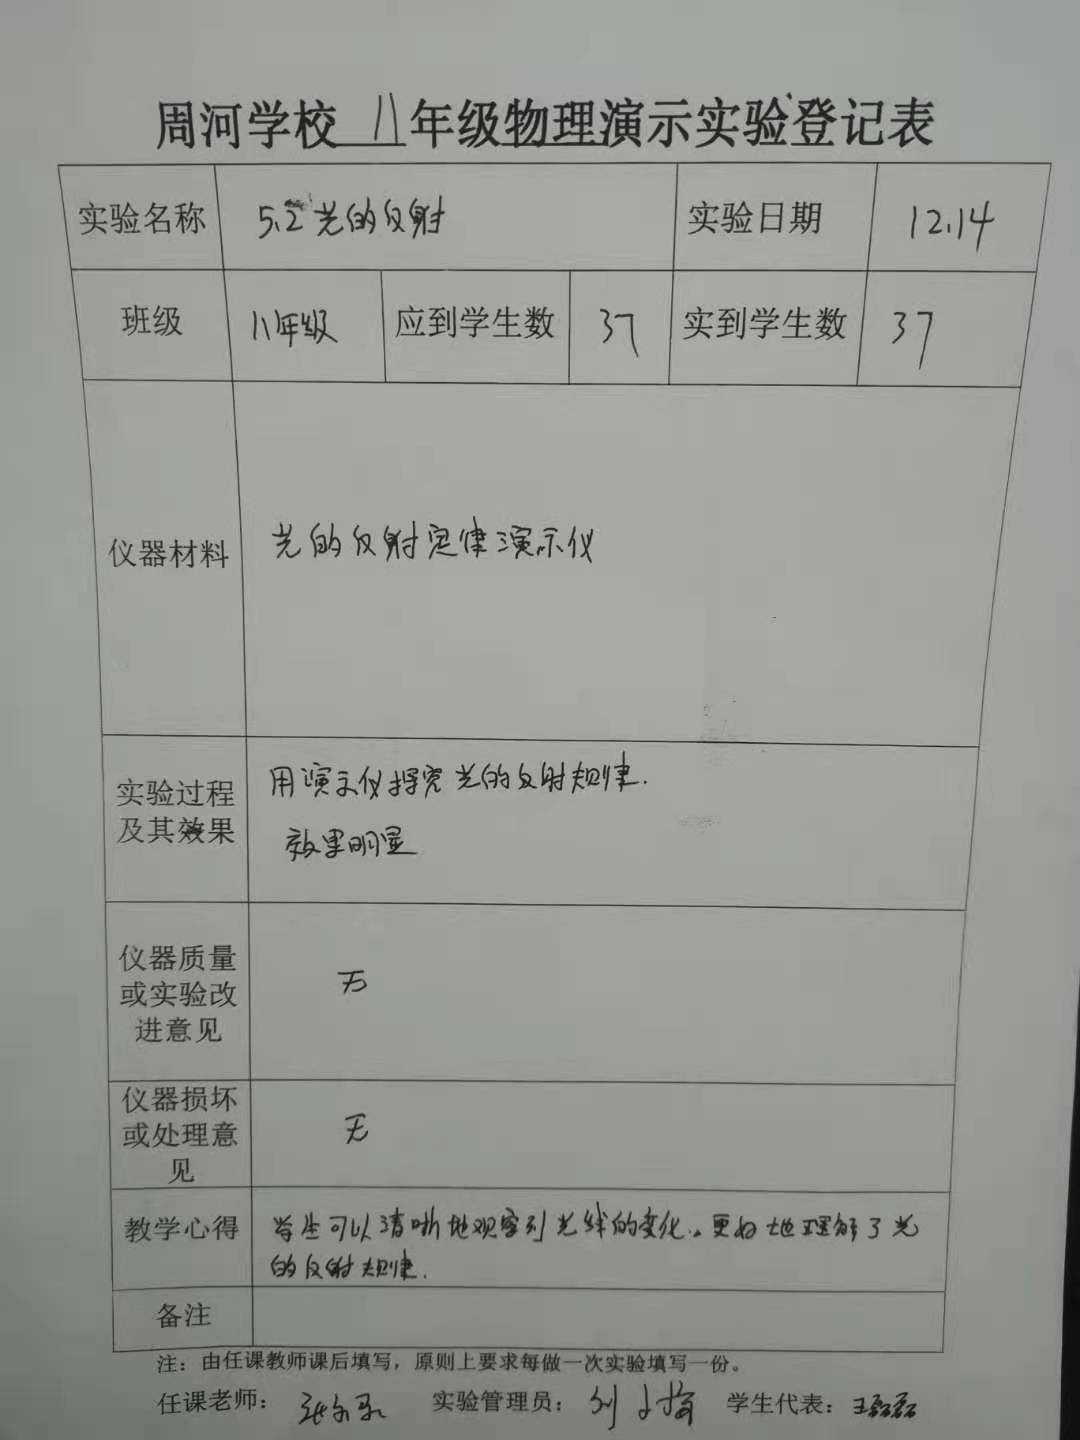 周河学校 八年级物理演示实验登记表
实验名称 5.2 光的反射 实验日期 12.14
班级 八年级 应到学生数 37 实到学生数 37
仪器材料 光的反射定律演示仪
实验过程及其效果
用演示仪探究光的反射规律.
效果明显
仪器质量或实验改进意见 无
仪器损坏或处理意见 无
教学心得 学生可以清晰地观察到光线的变化。更好地理解了光
的反射规律.
备注
注：由任课教师课后填写，原则上要求每做一次实验填写一份。
任课老师： 实验管理员： 刘 学生代表：王磊磊